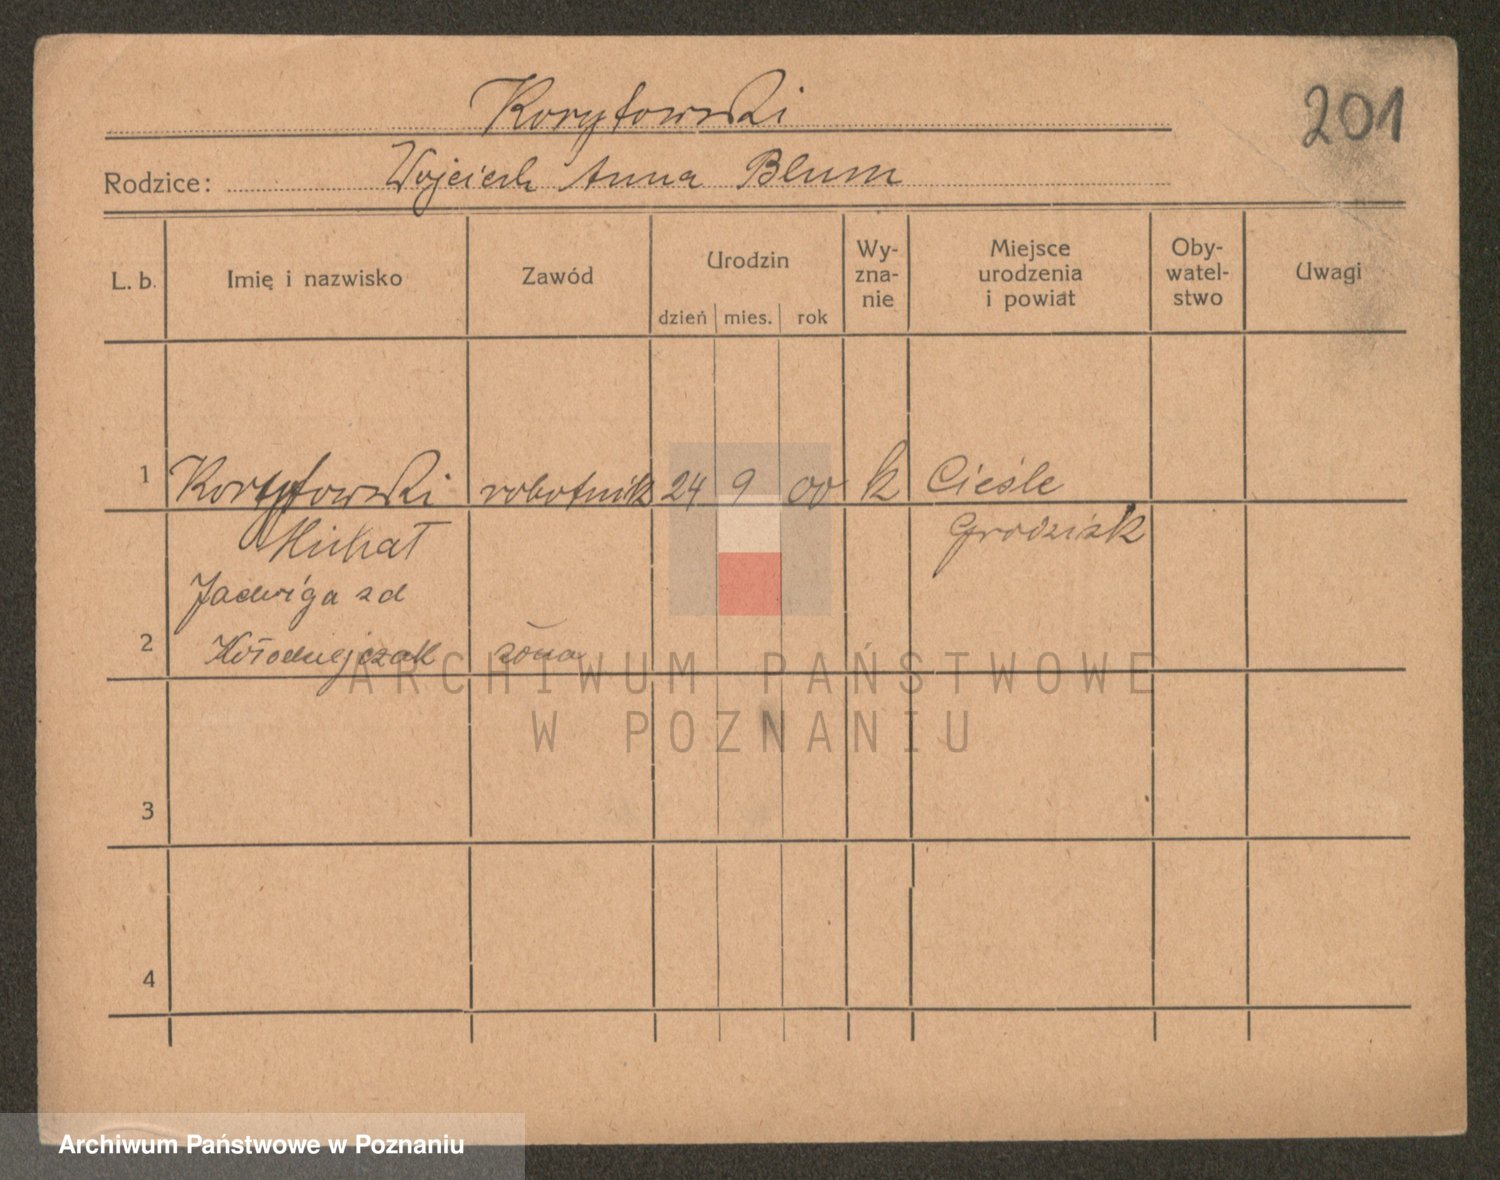 201
Korytowski
Rodzice: Wojciech Anna Blum
L. b. Imię i nazwisko Zawód Urodzin dzień mies. rok Wy-zna-nie Miejsce urodzenia i powiat Oby-watel-stwo Uwagi
1 Korytowski robotnik 24 9 00 k Cieśle
Michał Grodzisk
Jadwiga zd
2 Kołodziejczak żona
3
4
ARCHIWUM PAŃSTWOWE
W POZNANIU
Archiwum Państwowe w Poznaniu